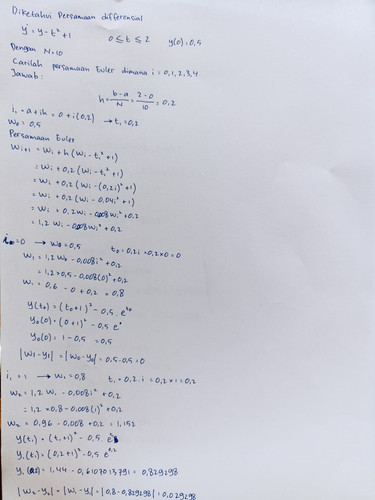 Diketahui Persamaan differensial
y' = y - t² + 1    0 ≤ t ≤ 2    y(0) = 0,5
Dengan N=10
Carilah persamaan Euler dimana i = 0,1,2,3,4
Jawab:
h = b-a/N = 2-0/10 = 0,2
i₁ = a+ih = 0 + i(0,2) → t₁ = 0,2
w₀ = 0,5
Persamaan Euler
Wi+1 = Wi + h (Wi - ti² + 1)
= Wi + 0,2 (Wi - ti² + 1)
= Wi + 0,2 (Wi - (0,2i)² + 1)
= Wi + 0,2 (Wi - 0,04i² + 1)
= Wi + 0,2Wi - 0,008i² + 0,2
= 1,2 Wi - 0,008i² + 0,2
i₀ = 0 → W₀ = 0,5    t₀ = 0,2i = 0,2×0 = 0
W₁ = 1,2 W₀ - 0,008i² + 0,2
= 1,2×0,5 - 0,008(0)² + 0,2
W₁ = 0,6 - 0 + 0,2 = 0,8
y(t₀) = (t₀+1)² - 0,5. e^t₀
y₀(0) = (0+1)² - 0,5 e⁰
y₀(0) = 1 - 0,5 = 0,5
|Wi - yi| = |W₀ - y₀| = 0,5 - 0,5 = 0
i₁ = 1 → W₁ = 0,8    t₁ = 0,2.i = 0,2×1 = 0,2
W₂ = 1,2 W₁ - 0,008i² + 0,2
= 1,2 × 0,8 - 0,008(1)² + 0,2
W₂ = 0,96 - 0,008 + 0,2 = 1,152
y(t₁) = (t₁+1)² - 0,5. e
y₁(t₁) = (0,2+1)² - 0,5 e^0,2
y₁(0,2) = 1,44 - 0,6107013791 = 0,829298
|W₁ - y₁| = |0,8 - 0,829298| = 0,029298